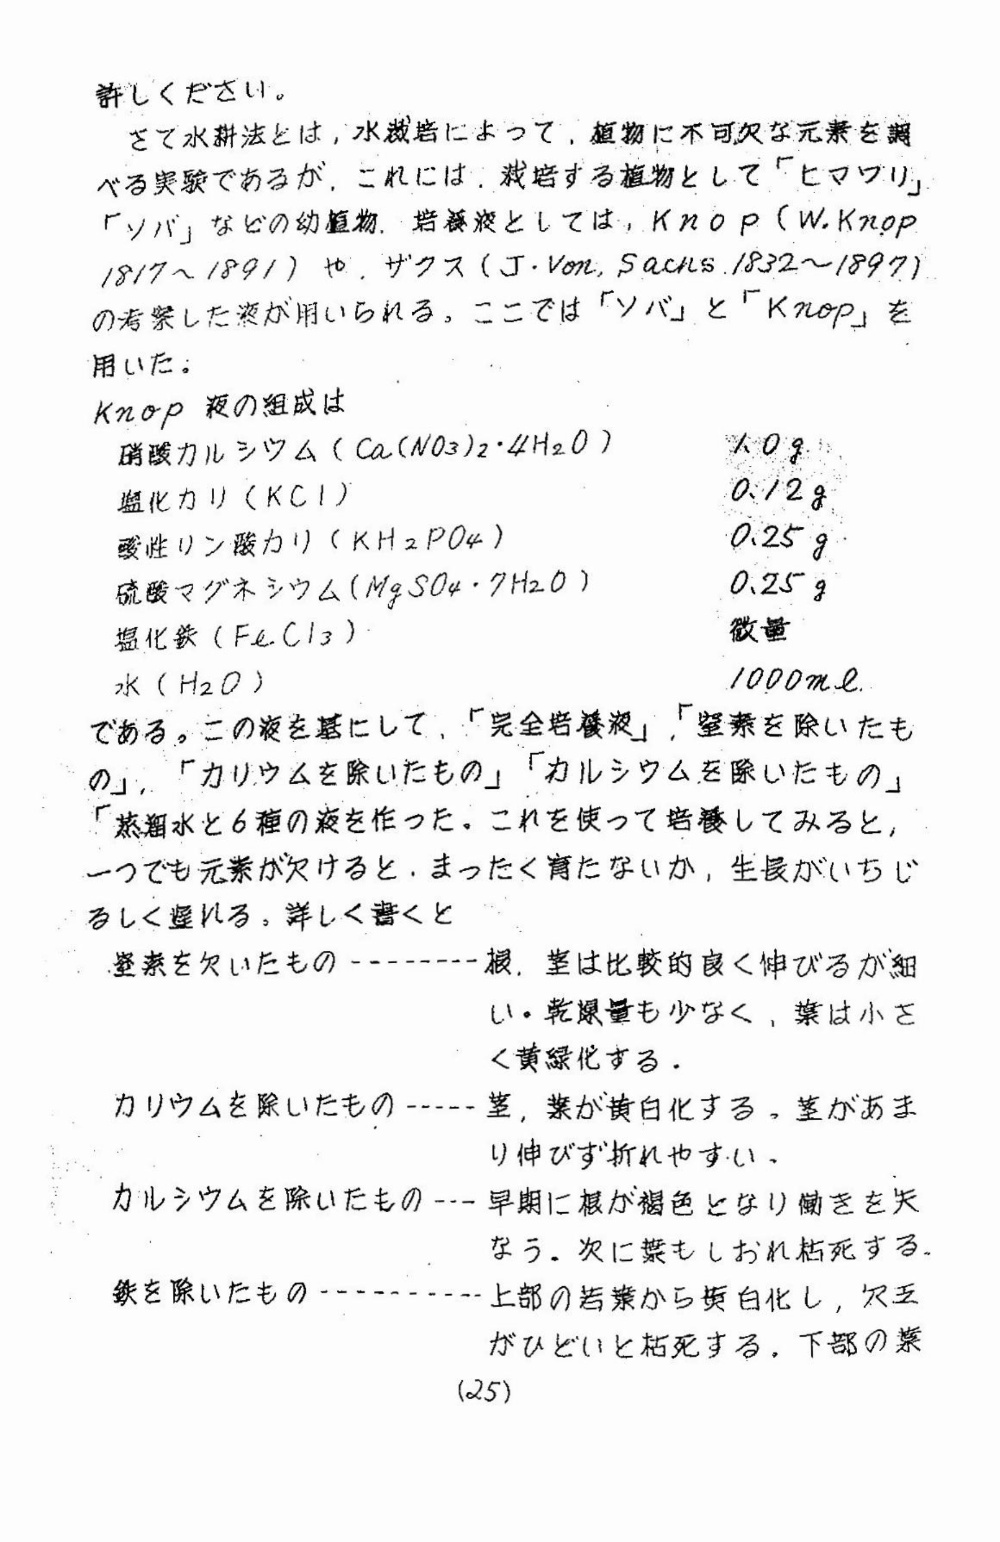 許しください。
さて水耕法とは，水栽培によって，植物に不可欠な元素を調
べる実験であるが，これには，栽培する植物として「ヒマワリ」
「ソバ」などの幼植物，培養液としては，Knop（W.Knop
1817〜1891）や，ザクス（J・Von, Sachs 1832〜1897）
の考案した液が用いられる。ここでは「ソバ」と「Knop」を
用いた。
Knop 液の組成は
硝酸カルシウム（Ca(NO3)2・4H2O） 1.0g
塩化カリ（KCl） 0.12g
酸性リン酸カリ（KH2PO4） 0.25g
硫酸マグネシウム（MgSO4・7H2O） 0.25g
塩化鉄（FeCl3） 微量
水（H2O） 1000ml
である。この液を基にして，「完全培養液」，「窒素を除いたも
の」，「カリウムを除いたもの」「カルシウムを除いたもの」
「蒸溜水と6種の液を作った。これを使って培養してみると，
一つでも元素が欠けると，まったく育たないか，生長がいちじ
るしく遅れる。詳しく書くと
窒素を欠いたもの --------根，茎は比較的良く伸びるが細
い。乾燥量も少なく，葉は小さ
く黄緑化する．
カリウムを除いたもの -----茎，葉が黄白化する。茎があま
り伸びず折れやすい。
カルシウムを除いたもの ---早期に根が褐色となり働きを失
なう。次に葉もしおれ枯死する。
鉄を除いたもの ----------上部の若葉から黄白化し，欠乏
がひどいと枯死する．下部の葉
(25)